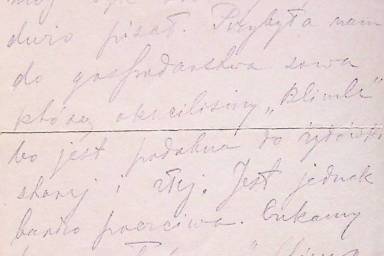 dużo pisał. Przybyła nam
do gospodarstwa sowa
którą okrciliśmy „Blimle"
bo jest podobna do żydówki
starej i złej. Jest jednak
bardzo poczciwa.